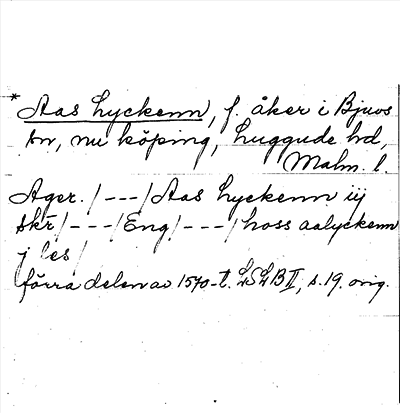 * Aas Lyckenn, f. åker i Bjuvs
sn, nu köping, Luggude hd,
Malm. l.
Ager. /---/ Aas Lyckenn iij
skr /---/ Eng /---/ hoss aalyckenn
j les /
förra delen av 1570-t. LSLB II, s. 19. orig.